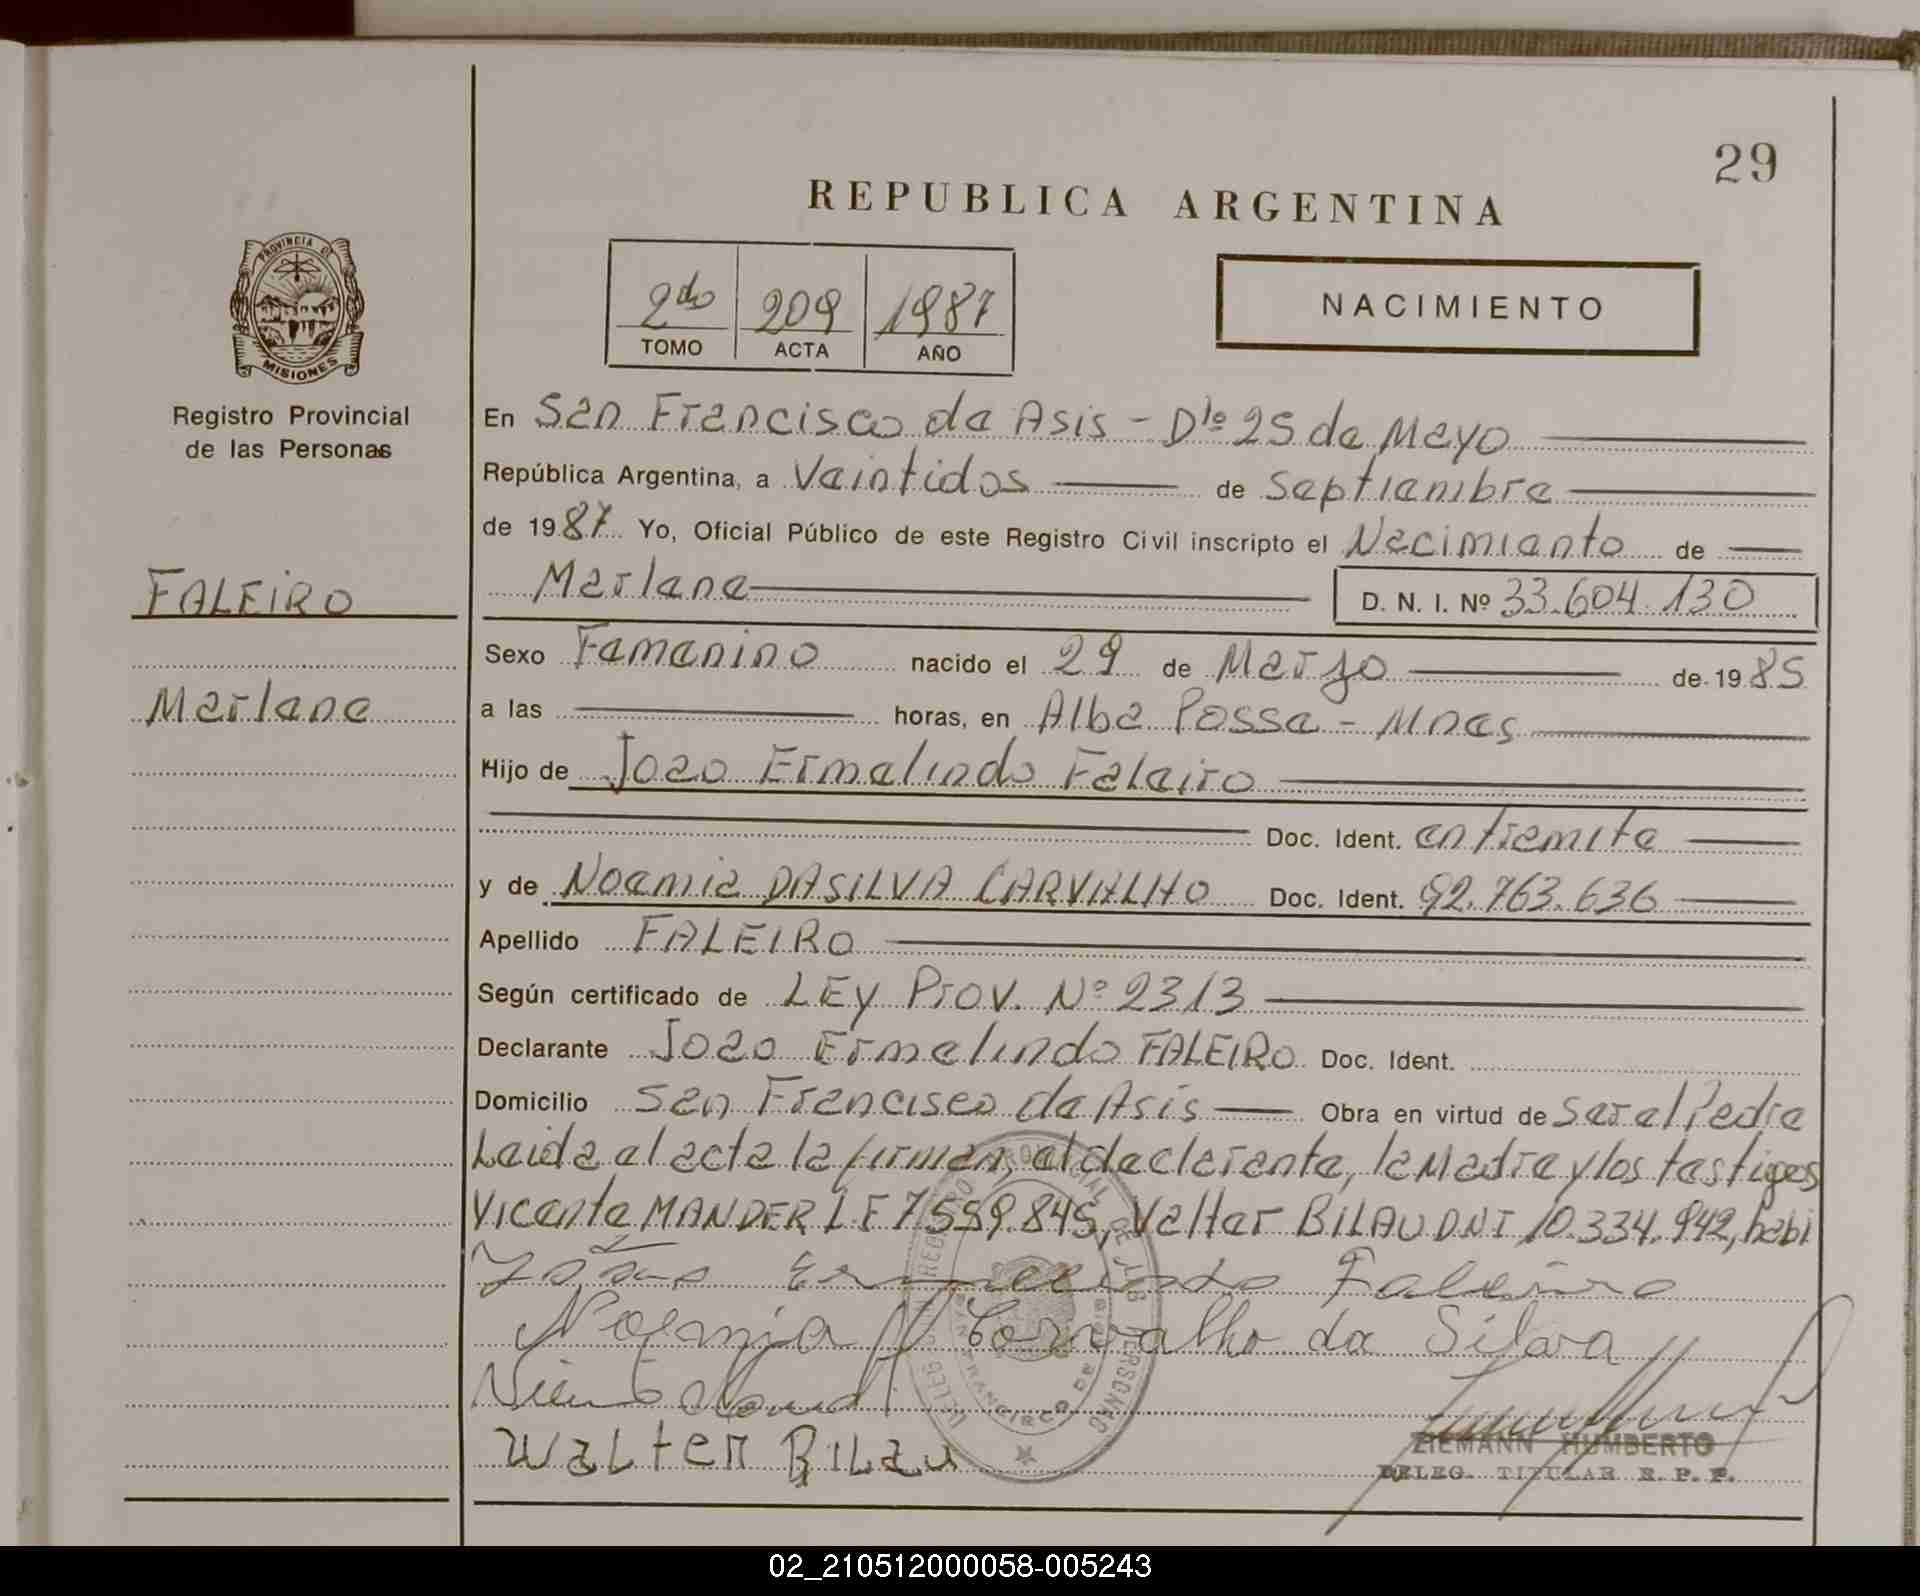 29
REPUBLICA ARGENTINA
2do 209 1987
TOMO ACTA AÑO
NACIMIENTO
PROVINCIA DE
MISIONES
Registro Provincial
de las Personas
FALEIRO
Marlene
En San Francisco de Asis - Dto 25 de Mayo
República Argentina, a Veintidos de Septiembre
de 1987 Yo, Oficial Público de este Registro Civil inscripto el Nacimiento de
Marlene D. N. I. Nº 33.604.130
Sexo Femenino nacido el 29 de Marzo de 1985
a las horas, en Alba Posse - Mnes
Hijo de Joao Ermelindo Faleiro
Doc. Ident. en tramite
y de Noemia DASILVA CARVALHO Doc. Ident. 92.763.636
Apellido FALEIRO
Según certificado de LEY Prov. Nº 2313
Declarante Joao Ermelindo FALEIRO Doc. Ident.
Domicilio San Francisco de Asis Obra en virtud de ser el Padre
Leida el acta la firman, el declarante, la Madre y los testigos
Vicente MANDER L E 7.559.845, Valter BILAU DNI 10.334.942, habi
João Ermelindo Faleiro
Noemia Corvalho da Silva
Walter Bilau
ZIEMANN HUMBERTO
DELEG. TITULAR R. P. P.
02_210512000058-005243